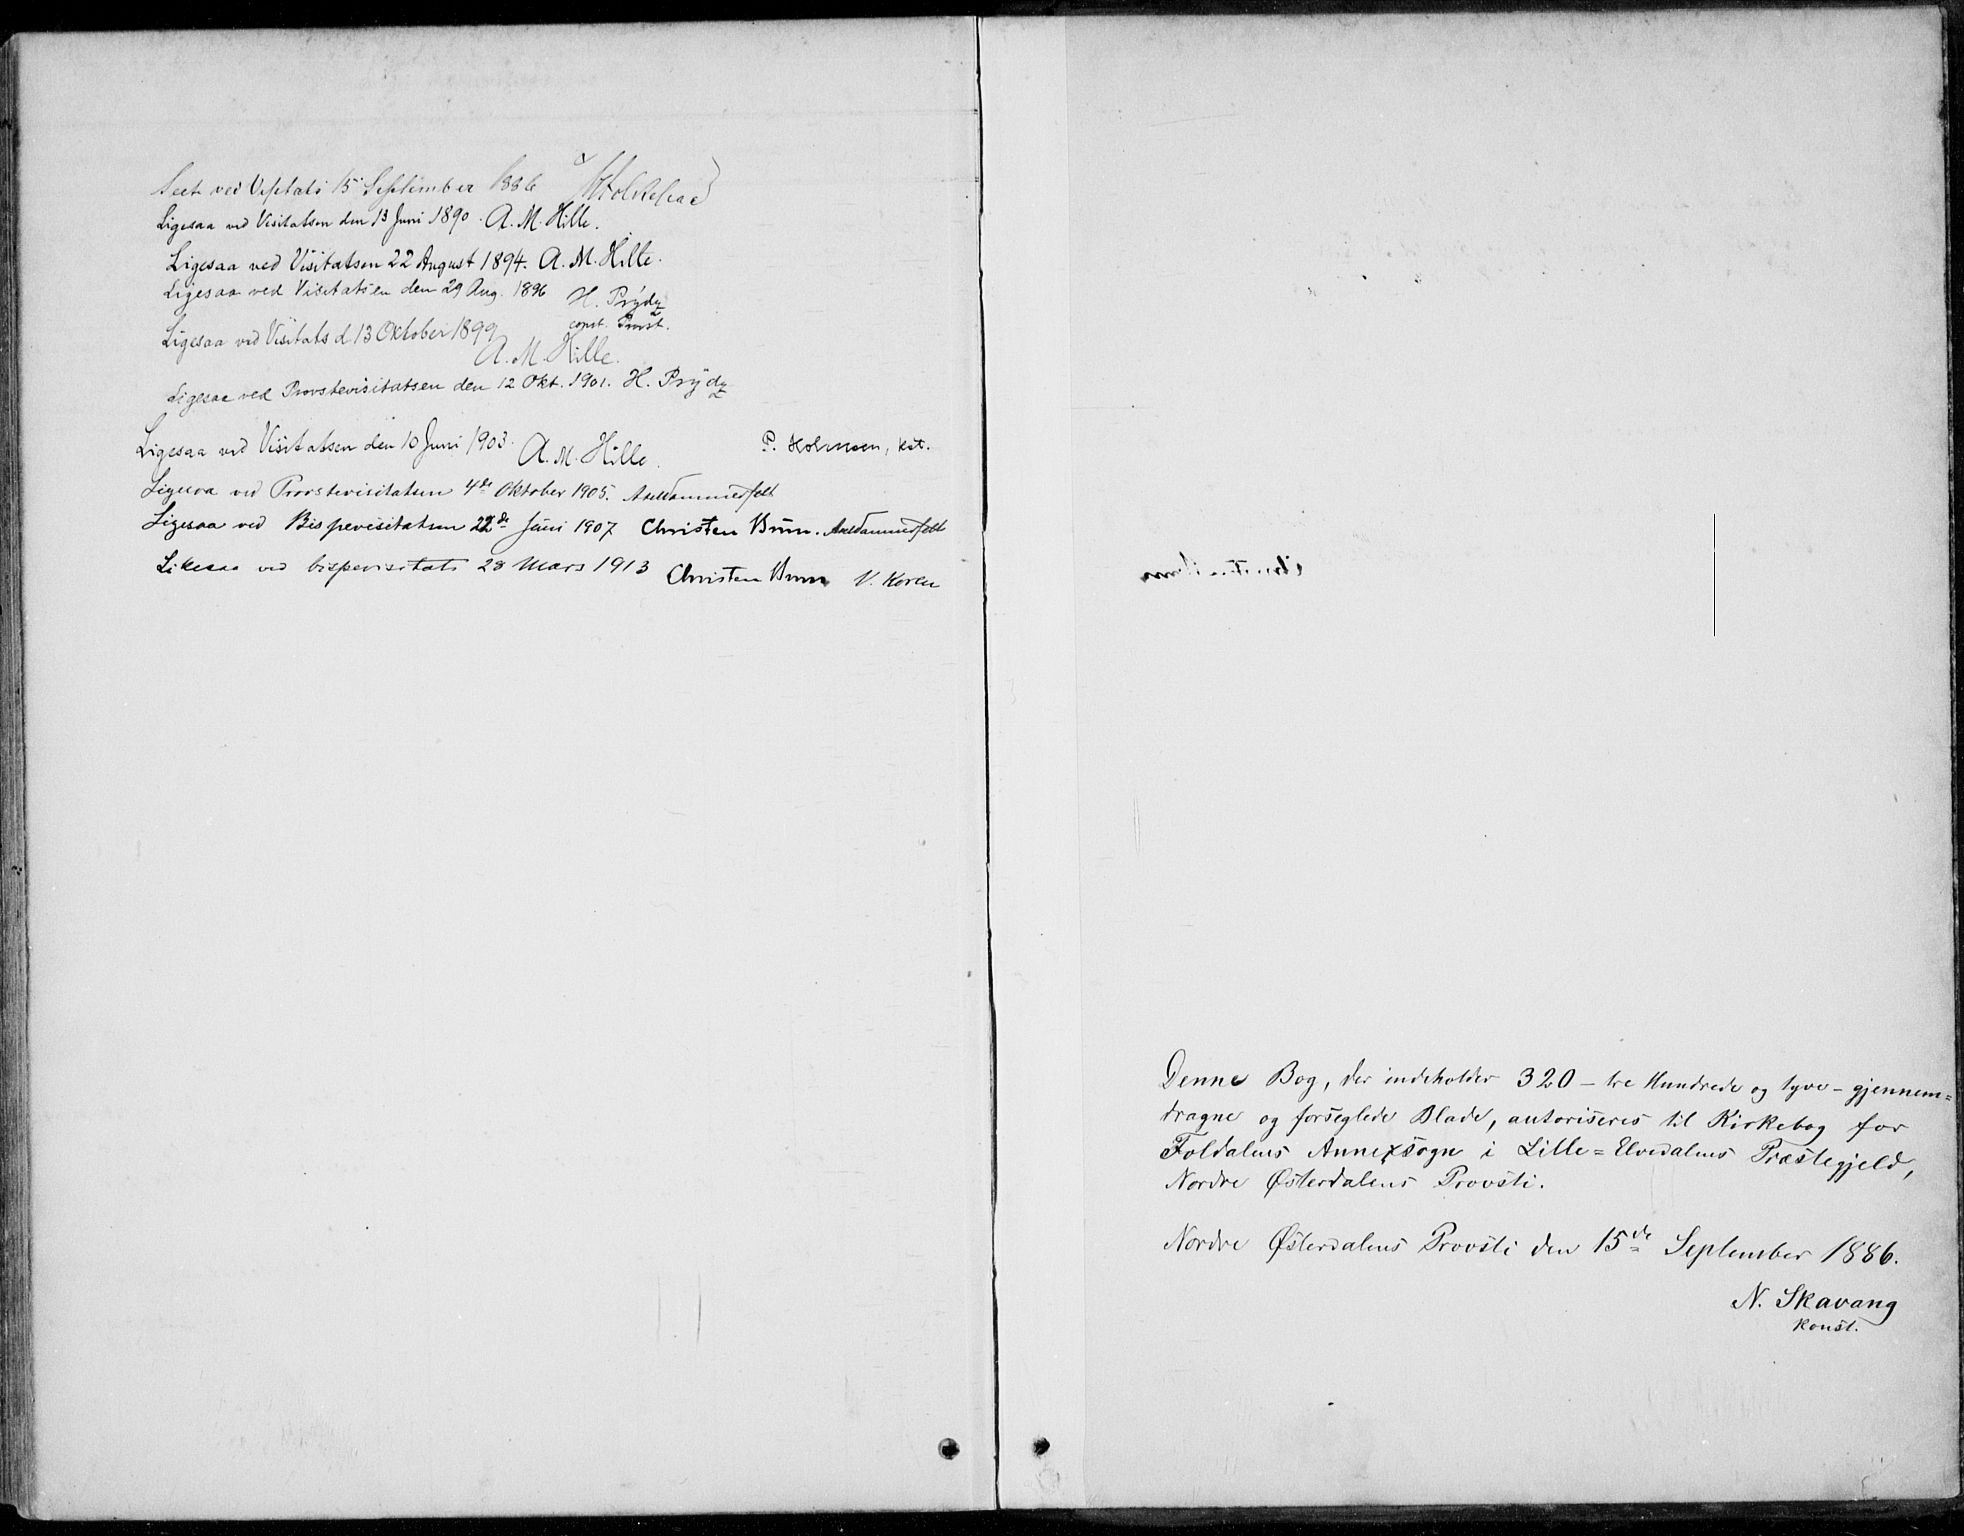 Seet ved Visitats 15 September 1886
Ligesaa ved Visitatsen den 13 Juni 1890. A. M. Hille.
Ligesaa ved Visitatsen 22 August 1894. A. M. Hille.
Ligesaa ved Visitatsen den 29 Aug. 1896 H. Prydz
const. Provst.
Ligesaa ved Visitats d. 13 Oktober 1899
A. M. Hille.
Ligesaa ved Provstevisitatsen den 12 Okt. 1901. H. Prydz
Ligesaa ved Visitatsen den 10 Juni 1903. A. M. Hille. P. Holmsen, kst.
Ligesaa ved Provstevisitatsen 4de Oktober 1905. Axel Dammerfelt
Ligesaa ved Bispevisitatsen 22de Juni 1907 Christen Brun. Axel Dammerfelt
Likesaa ved bispevisitats 28 Mars 1913 Christen Brun V. Koren
Denne Bog, der indeholder 320 - tre Hundrede og tyve - gjennem=
dragne og forseglede Blade, autoriseres til Kirkebog for
Foldalens Annexsogn i Lille=Elvedalens Præstegjeld,
Nordre Østerdalens Provsti.
Nordre Østerdalens Provsti den 15de September 1886.
N. Skavang
konst.